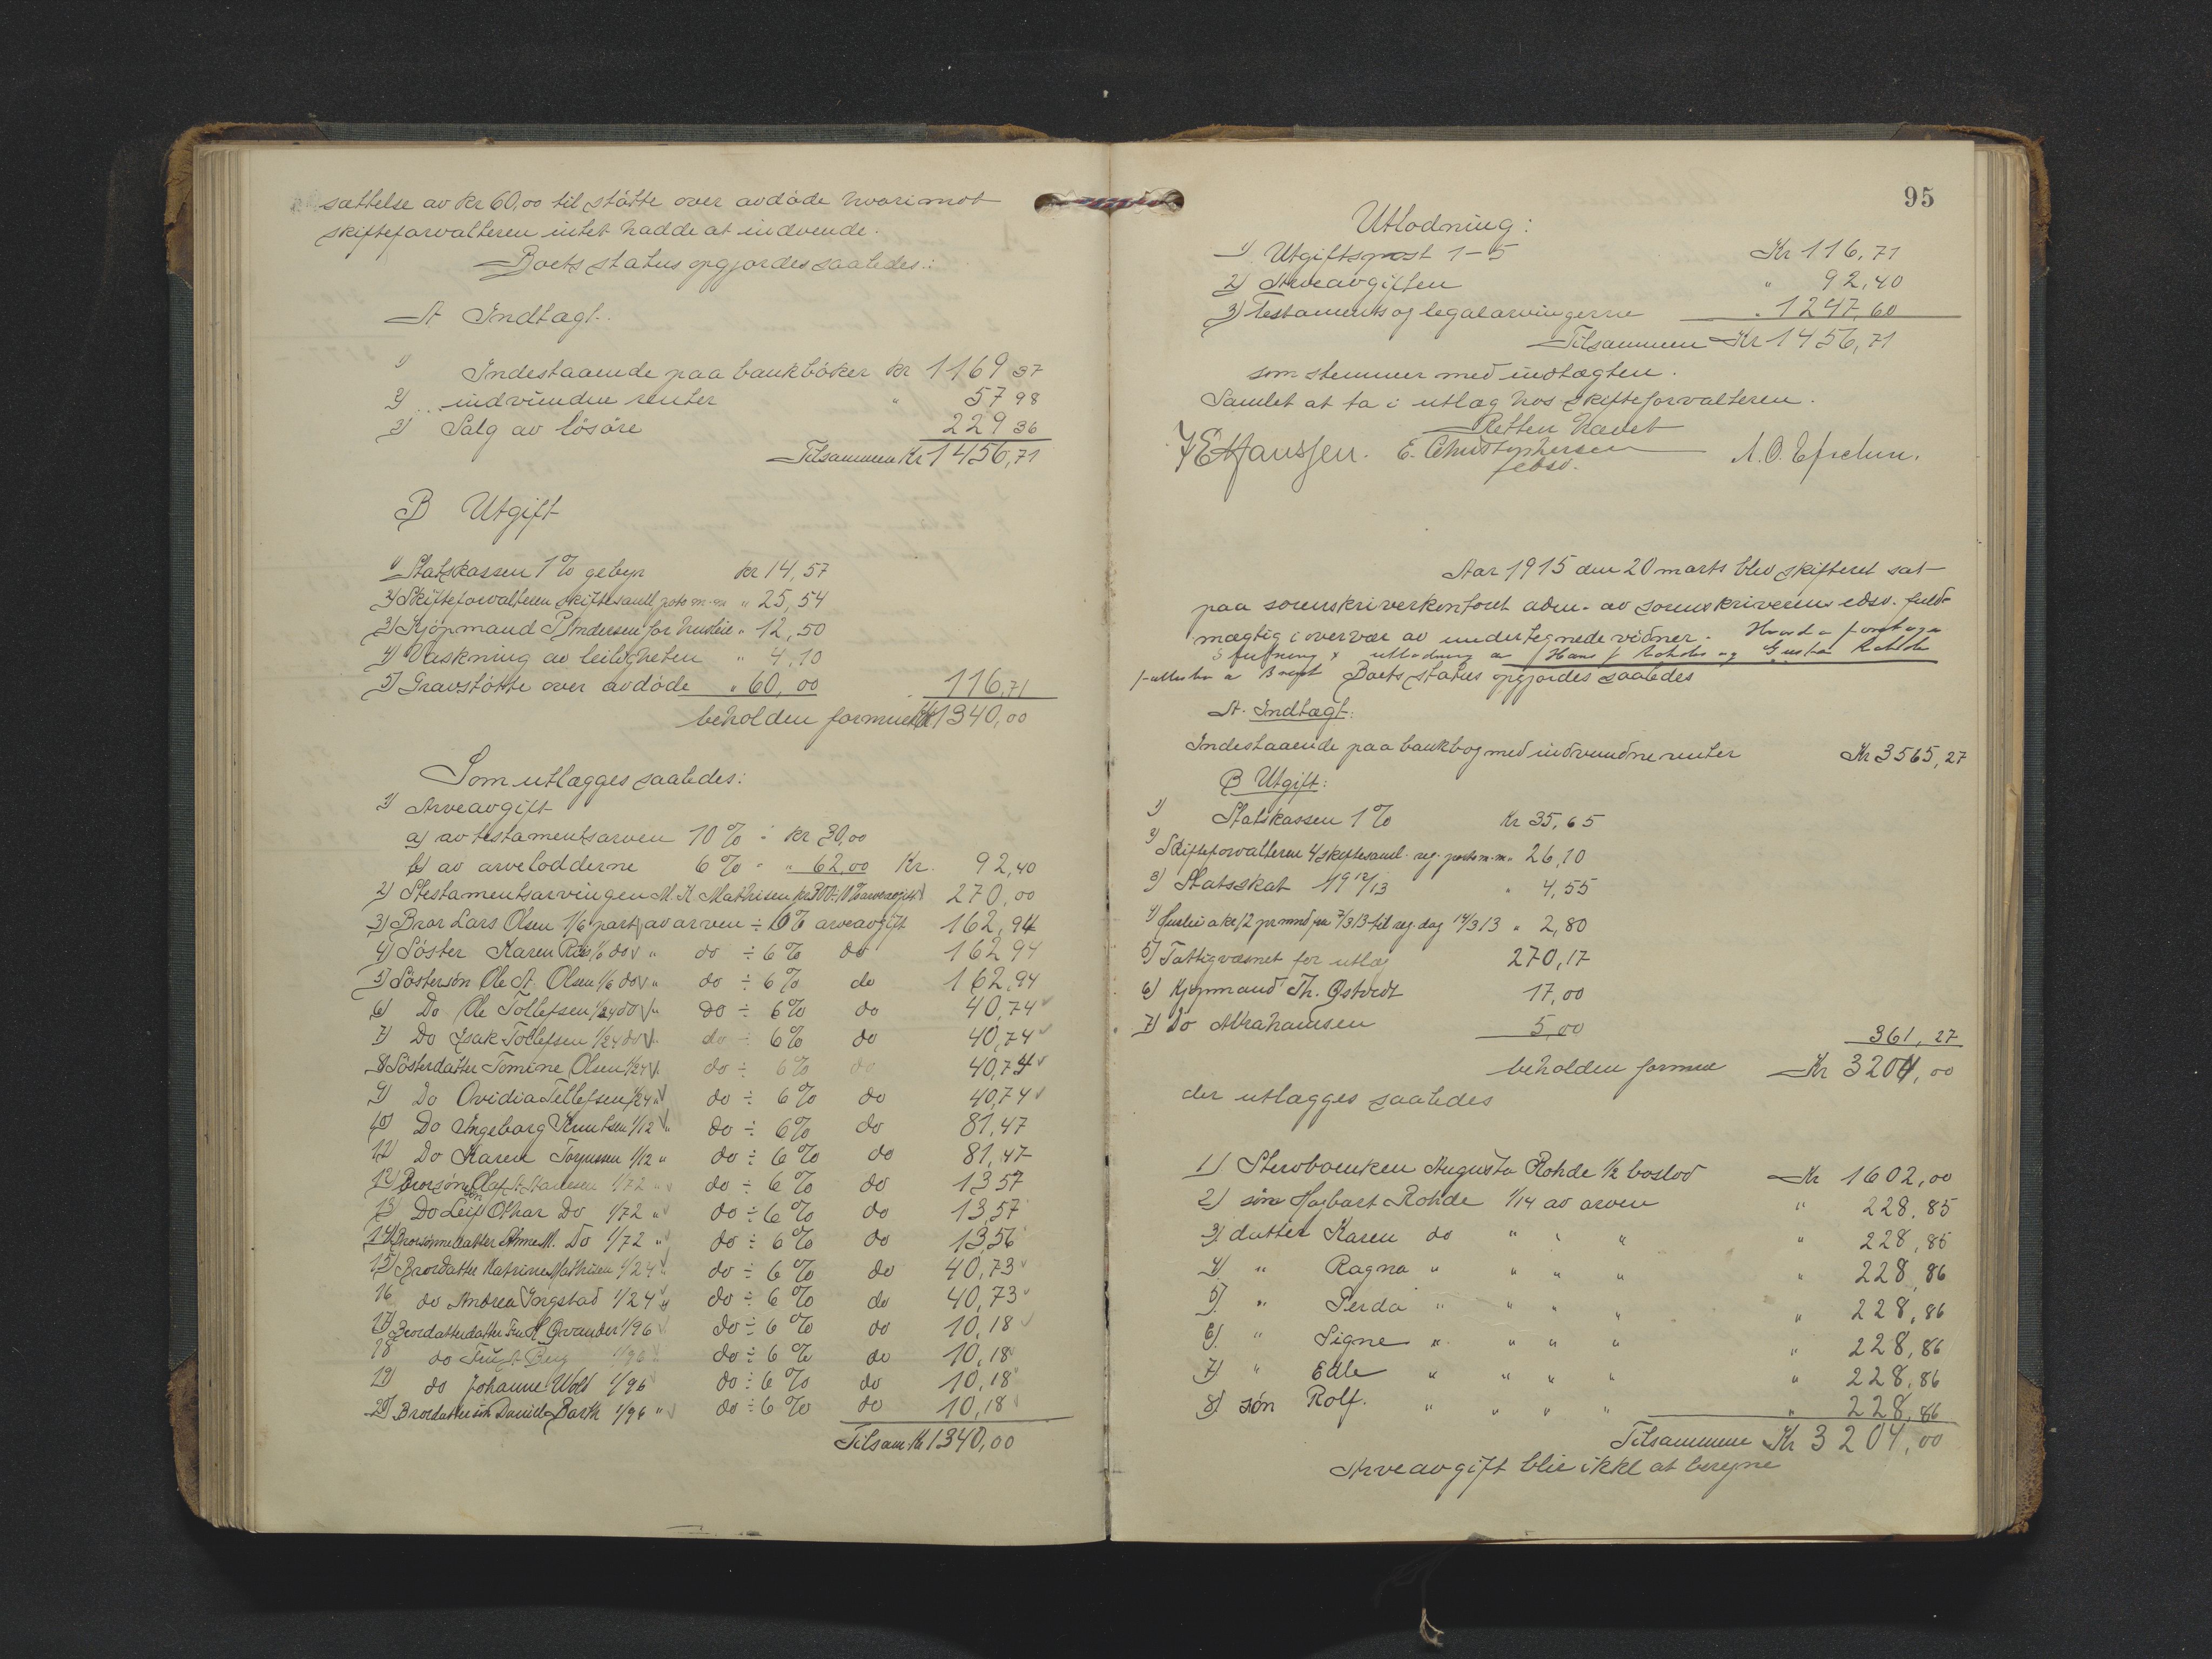 sættelse av kr 60,00 til støtte over avdøde hvorimot
skifteforvalteren intet hadde at indvende.
Boets status opgjordes saaledes:
A Indtægt.
1) Indestaaende paa bankbøker kr 1169 37
2) indvundne renter " 57 98
3) Salg av løsøre 229 36
Tilsammen Kr 1456,71
B Utgift
1) Statskassen 1% gebyr kr 14,57
2) Skifteforvalteren skiftesaml porto m.m " 25,54
3) Kjøpmand P Andersen for husleie " 12,50
4) Vaskning av leiligheten " 4,10
5) Gravstøtte over avdøde " 60,00 116,71
beholden formue Kr 1340,00
Som utlægges saaledes:
1) Arveavgift
a) av testamentsarven 10% : kr 30,00
b) av arvelodderne 6% " " 62,00 Kr. 92,40
2) Testamentsarvingen M. K. Mathisen kr 300 ÷ 10% arveavgift 270,00
3) Bror Lars Olsen 1/6 part av arven ÷ 6% arveavgift 162,94
4) Søster Karen Riis 1/6 do " do ÷ 6% do 162 94
5) Søstersøn Ole A. Olsen 1/6 do " do ÷ 6% do 162,94
6) Do Ole Tollefsen 1/24 do " do ÷ 6% do 40,74
7) Do Isak Tollefsen 1/24 do " do ÷ 6% do 40,74
8) Søsterdatter Tomine Olsen 1/24 " do ÷ 6% do 40,74
9) Do Ovidia Tellefsen 1/24 " do ÷ 6% do 40,74
10) Do Ingeborg Knutsen 1/12 " do ÷ 6% do 81,47
11) Do Karen Torjussen 1/12 " do ÷ 6% do 81,47
12) Brorsøns Olaf A. 1/72 " do ÷ 6% do 13,57
13) Do Leif Othar Do 1/72 " do ÷ 6% do 13,57
14) Brorsønnedatter Anne M. Do 1/72 " do ÷ 6% do 13,56
15) Brordatter Katrine Mathisen 1/24 " do ÷ 6% do 40,73
16 do Andrea Ingstad 1/24 " do ÷ 6% do 40,73
17) Brordatterdatter Fru H. 1/96 do ÷ 6% do 10,18
18 do Fru A. Berg 1/96 do ÷ 6% do 10,18
19) do Johanne Wold 1/96 do ÷ 6% do 10,18
20) Brordattersøn Daniel Barth 1/96 " do ÷ 6% do 10,18
Tilsam Kr 1340,00
95
Utlodning:
1) Utgiftspost 1-5 Kr 116,71
2) Arveavgiften " 92,40
3) Testaments og legalarvingerne " 1247,60
Tilsammen Kr 1456,71
som stemmer med indtægten.
Samlet at ta i utlæg hos skifteforvalteren.
Retten hævet
E. Christophersen
edsv.
Aar 1915 den 20 marts blev skifteret sat
paa sorenskriverkontoret adm. av sorenskriverens edsv. fuld-
mægtig i overvær av undertegnede vidner. Hvorda foretoges
slutning utlodning a Hans Rohde og Gusta Rohde
fælles bo a Boets status opgjordes saaledes
A. Indtægt:
Indestaaende paa bankbog med indvundne renter Kr 3565,27
B Utgift:
1) Statskassen 1% Kr 35,65
2) Skifteforvalteren 4 skiftesaml. reg. porto m.m. " 26,10
3) Statsskat 19 12/13 " 4,55
4) Husleie a kr 12 pr mnd fra 7/3 13 til reg. dag 14/3 13 " 2,80
5) Fattigvæsnet for utlæg 270,17
6) Kjøpmand Th. Østvedt 17,00
7) Do Abrahamsen 5,00 361,27
beholden formue Kr 3204,00
der utlægges saaledes
1) Stervboenken Augusta Rohde 1/2 boslod Kr 1602,00
2) søn Hagbart Rohde 1/14 av arven " 228,85
3) datter Karen do " " " " 228,85
4) " Ragna " " " " " 228,86
5) " Gerda " " " " " 228,86
6) " Signe " " " " " 228,86
7) " Edle " " " " " 228,86
8) søn Rolf. " " " " " 228,86
Tilsammen Kr 3204,00
Arveavgift blir ikke at beregne